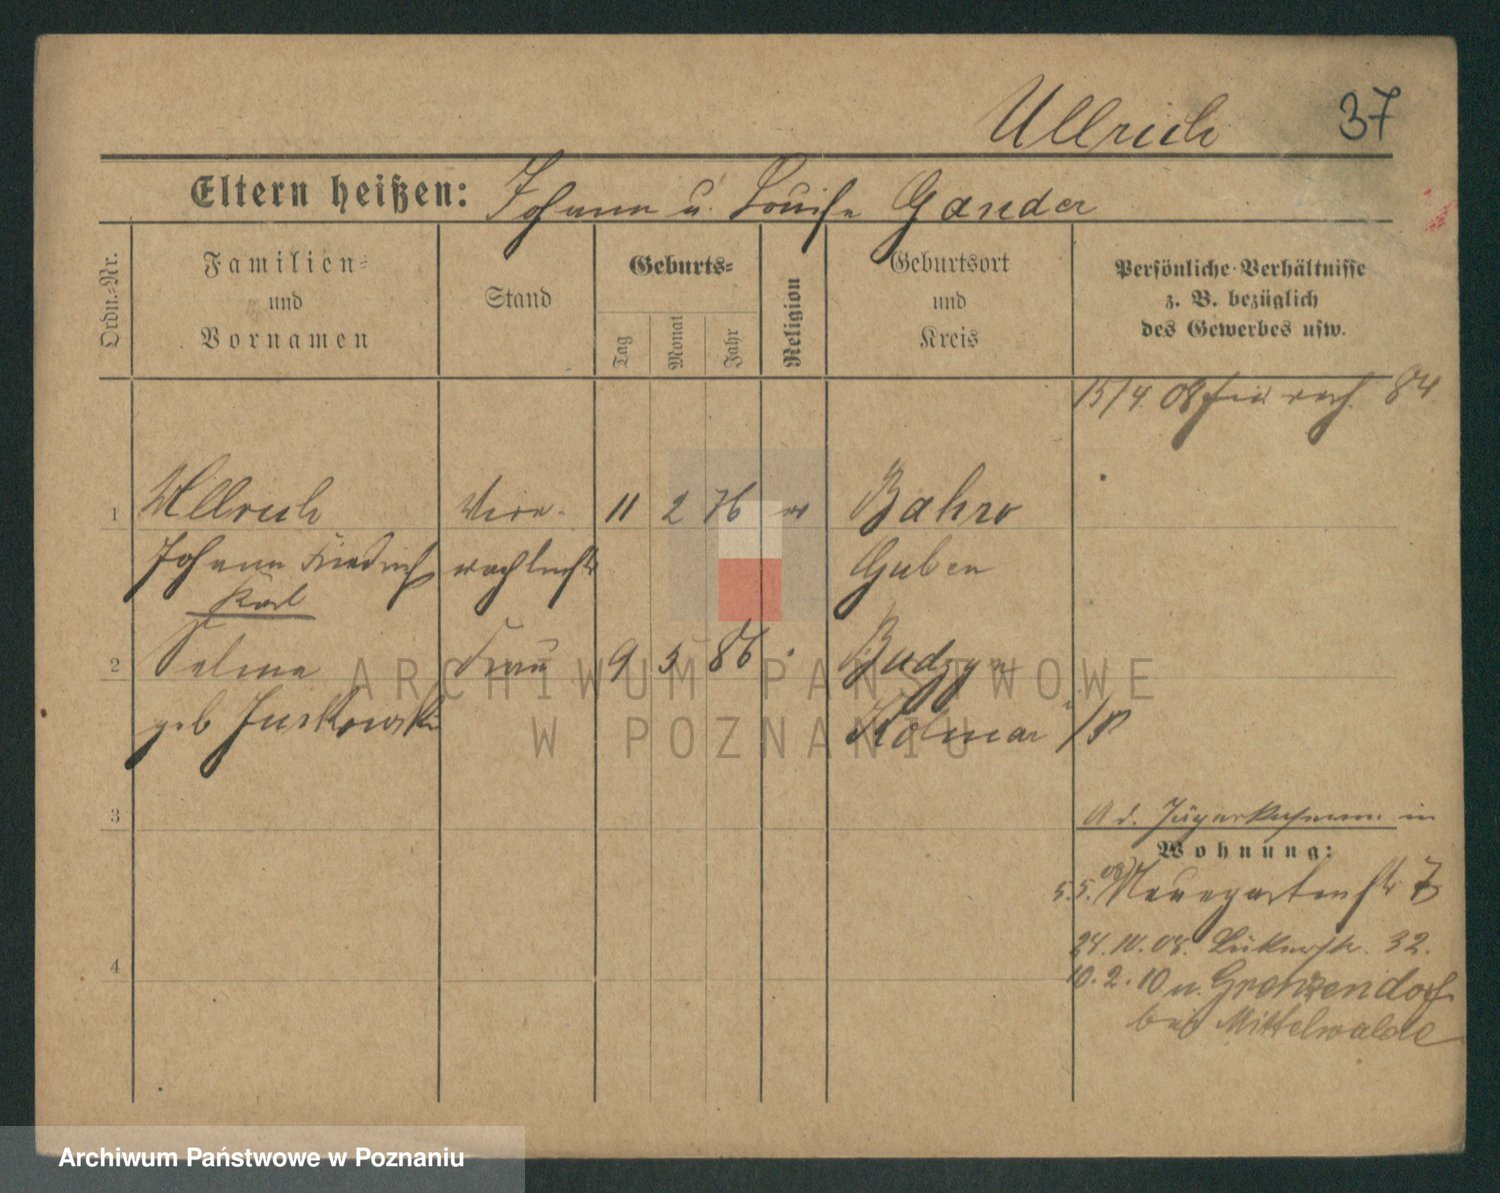 Ullrich 37
Eltern heißen: Johann u. Louise Gander
Ordn.-Nr.
Familien-
und
Vornamen
Stand
Geburts-
Tag
Monat
Jahr
Religion
Geburtsort
und
Kreis
Persönliche Verhältnisse
z. B. bezüglich
des Gewerbes usw.
15/4. 08 84
1 Ullrich 11 2 76 Bahro
Johann Friedrich Guben
Karl
2 Selma Frau 9 5 86 Budzyn
geb Jurkowski Kolmar i/P
3
A d. Jägerkaserne in
Wohnung:
5.5. 08 Neuegartenstr 7
24.10.08. 32.
10.2.10 n. Grenzendorf
bei Mittelwalde
4
ARCHIWUM PAŃSTWOWE
W POZNANIU
Archiwum Państwowe w Poznaniu